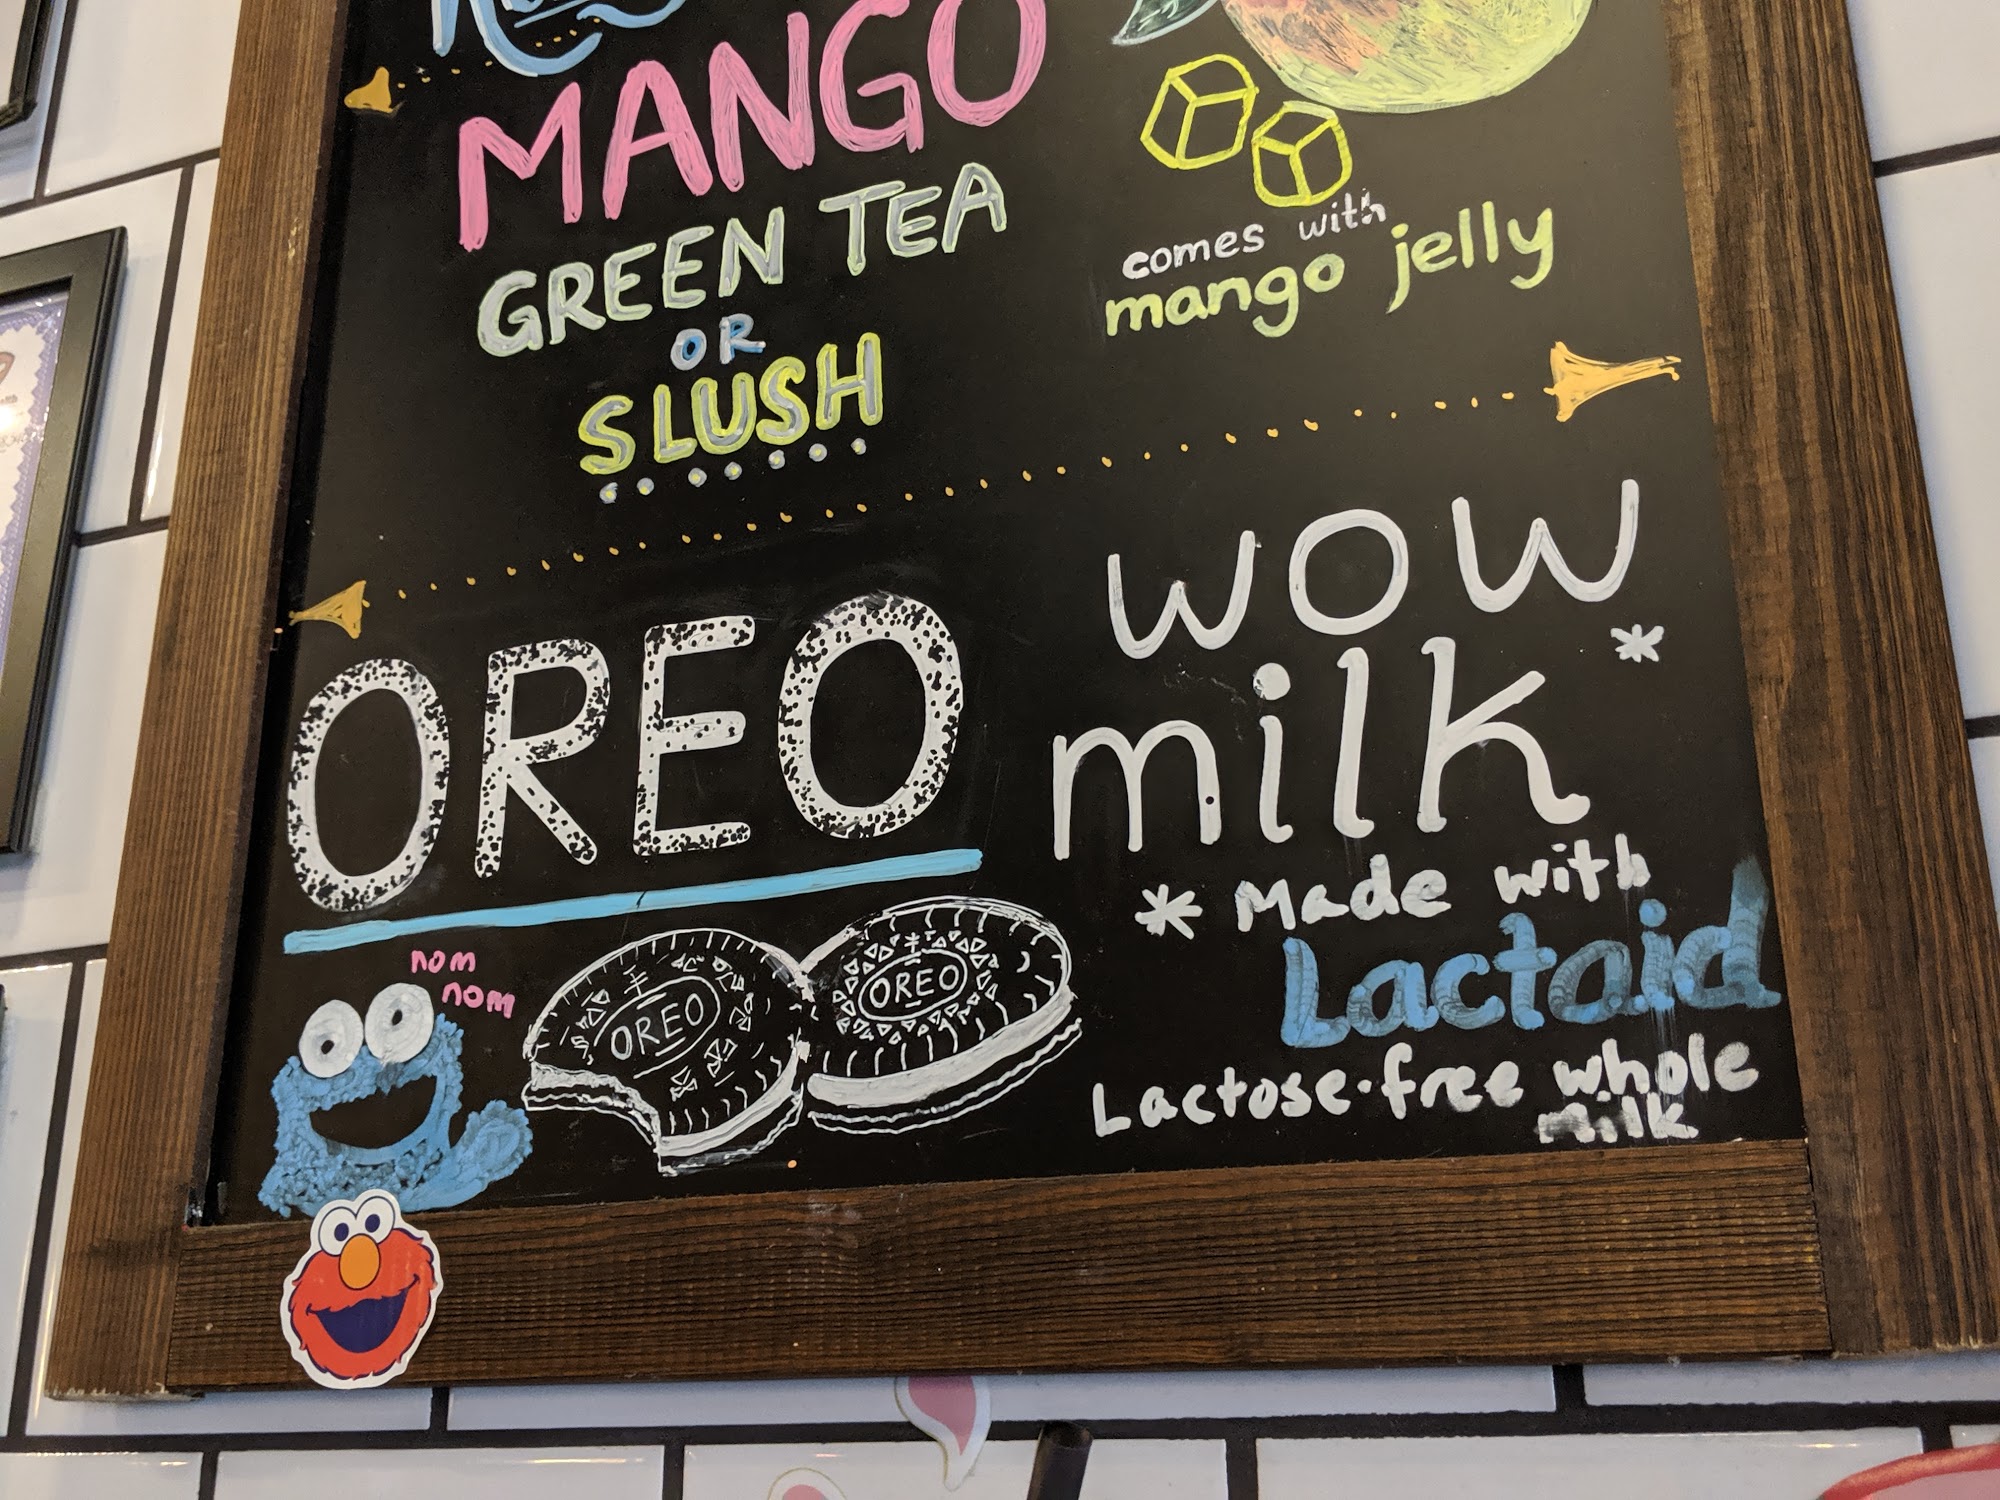 MANGO
GREEN TEA
OR
SLUSH
comes with
mango jelly
OREO
wow
milk*
nom
nom
OREO
OREO
* Made with
Lactaid
Lactose-free whole
milk